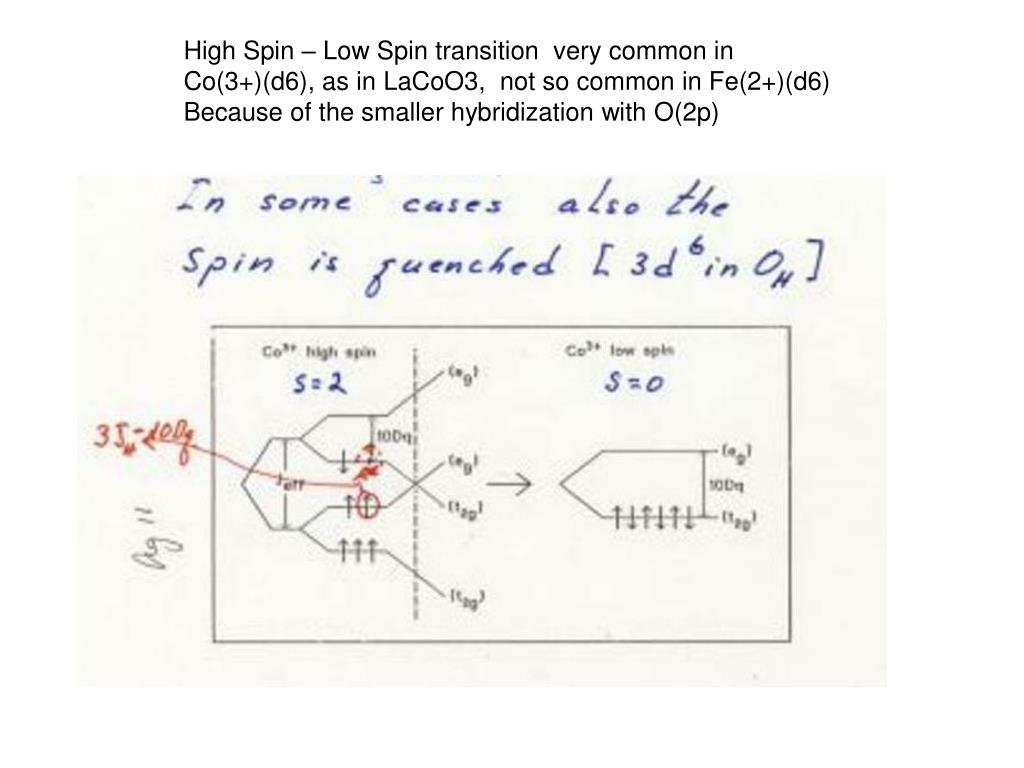 High Spin – Low Spin transition  very common in
Co(3+)(d6), as in LaCoO3,  not so common in Fe(2+)(d6)
Because of the smaller hybridization with O(2p)
In some cases also the
Spin is quenched [ 3d⁶ in O_H ]
Co³⁺ high spin
S=2
Co³⁺ low spin
S=0
(e_g)
10Dq
3J_H-10Dq
J_eff
(e_g)
(t_2g)
(t_2g)
(e_g)
10Dq
(t_2g)